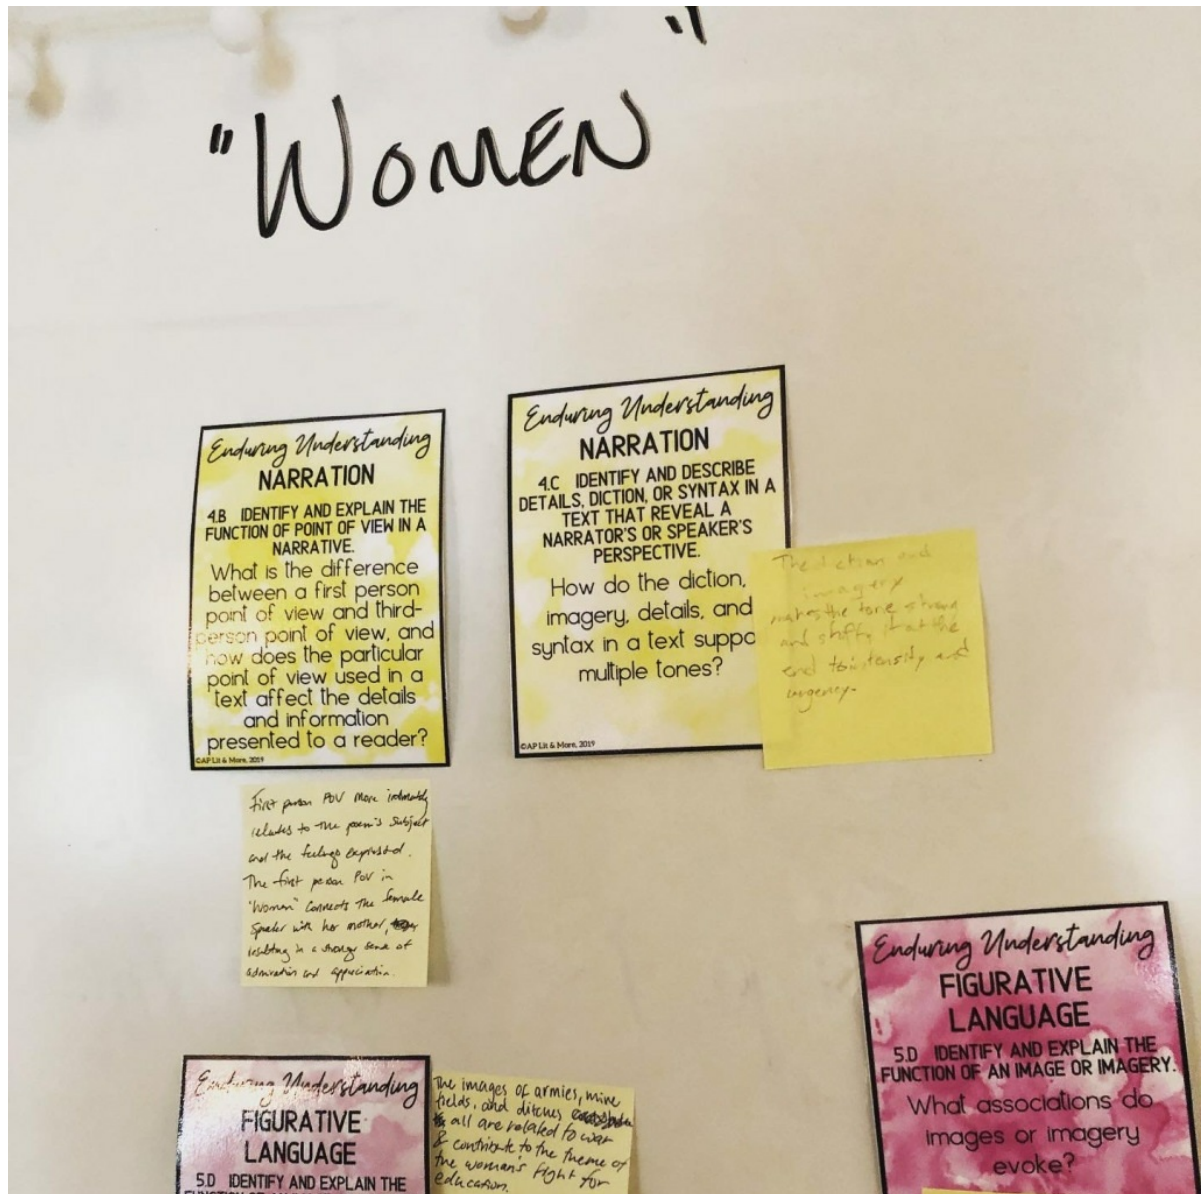 "WOMEN"
Enduring Understanding
NARRATION
4.B IDENTIFY AND EXPLAIN THE
FUNCTION OF POINT OF VIEW IN A
NARRATIVE.
What is the difference
between a first person
point of view and third-
person point of view, and
how does the particular
point of view used in a
text affect the details
and information
presented to a reader?
©AP Lit & More, 2019
First person POV more intimately
relates to the poem's subject
and the feelings expressed.
The first person POV in
"Women" connects the female
speaker with her mother,
resulting in a stronger sense of
admiration and appreciation.
Enduring Understanding
NARRATION
4.C IDENTIFY AND DESCRIBE
DETAILS, DICTION, OR SYNTAX IN A
TEXT THAT REVEAL A
NARRATOR'S OR SPEAKER'S
PERSPECTIVE.
How do the diction,
imagery, details, and
syntax in a text suppo
multiple tones?
©AP Lit & More, 2019
The diction and
imagery
makes the tone strong
and shifts it at the
end to intensity and
urgency.
Enduring Understanding
FIGURATIVE
LANGUAGE
5.D IDENTIFY AND EXPLAIN THE
The images of armies, mine
fields, and ditches
all are related to war
& contribute to the theme of
the woman's fight for
education.
Enduring Understanding
FIGURATIVE
LANGUAGE
5.D IDENTIFY AND EXPLAIN THE
FUNCTION OF AN IMAGE OR IMAGERY.
What associations do
images or imagery
evoke?